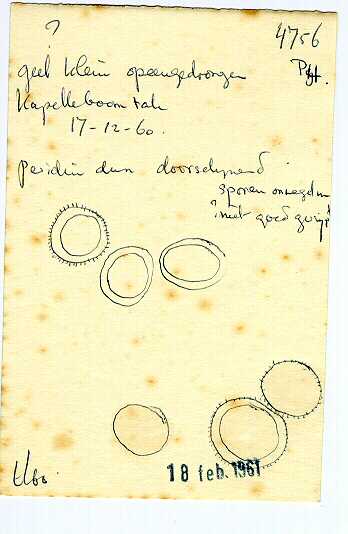 ?
4756
geel klein opeengedrongen
Kapelleboom tak
17-12-60.
peridie dun doorschijnend.
sporen onregelm
? niet goed gerijpt
18 feb. 1961